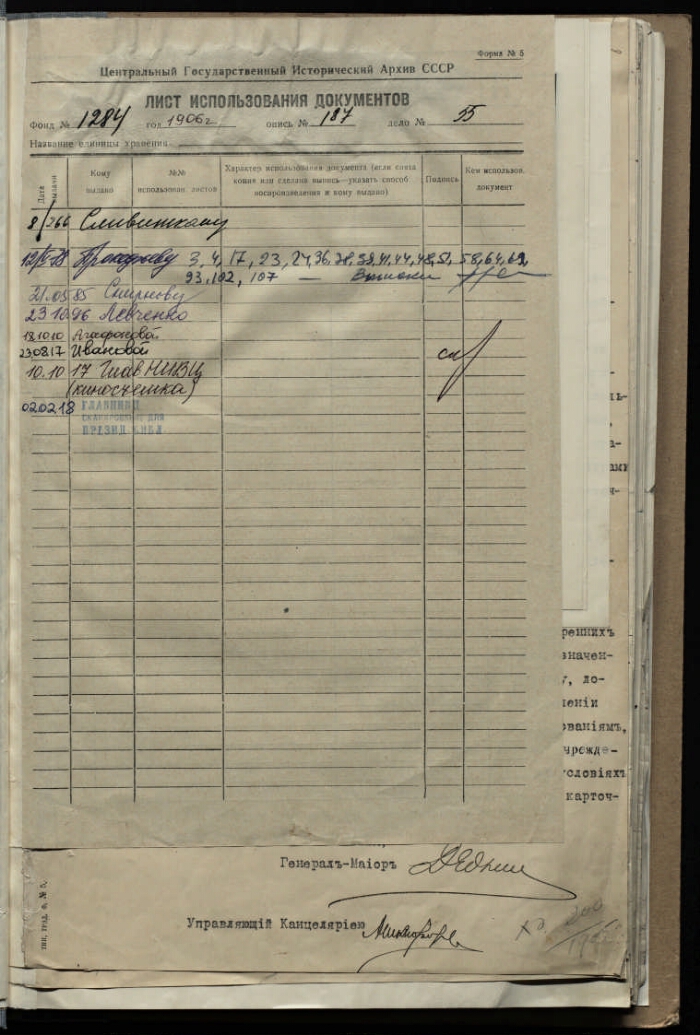 Форма № 5
Центральный Государственный Исторический Архив СССР
ЛИСТ ИСПОЛЬЗОВАНИЯ ДОКУМЕНТОВ
Фонд № 1284 год 1906 г. опись № 187 дело № 55
Название единицы хранения
Дата выдачи
Кому выдано
№№ использован. листов
Характер использования документа (если снята копия или сделана выпись—указать способ воспроизведения и кому выдано)
Подпись
Кем использов. документ
8/ 366 Сливицкому
3, 4, 17, 23, 24, 36, 38, 39, 41, 44, 48, 51, 58, 64, 69,
93, 102, 107 —
31.05 85 Смирнову
23 10 96 Левченко
18.10.10 Агафоновой
230817 Ивановой
10.10 17 Глав НИВЦ
(киносъемка)
020218 ГЛАВНИВЦ
СКАНИРОВАНИЕ ДЛЯ
ПРЕЗИД. БИБЛ.
ренныхъ
значен-
у, до-
ленiи
ованiямъ,
чрежде-
условiяхъ
карточ-
Генералъ-Маiоръ
Управляющiй Канцелярiею
тип. град. ф. № 5.